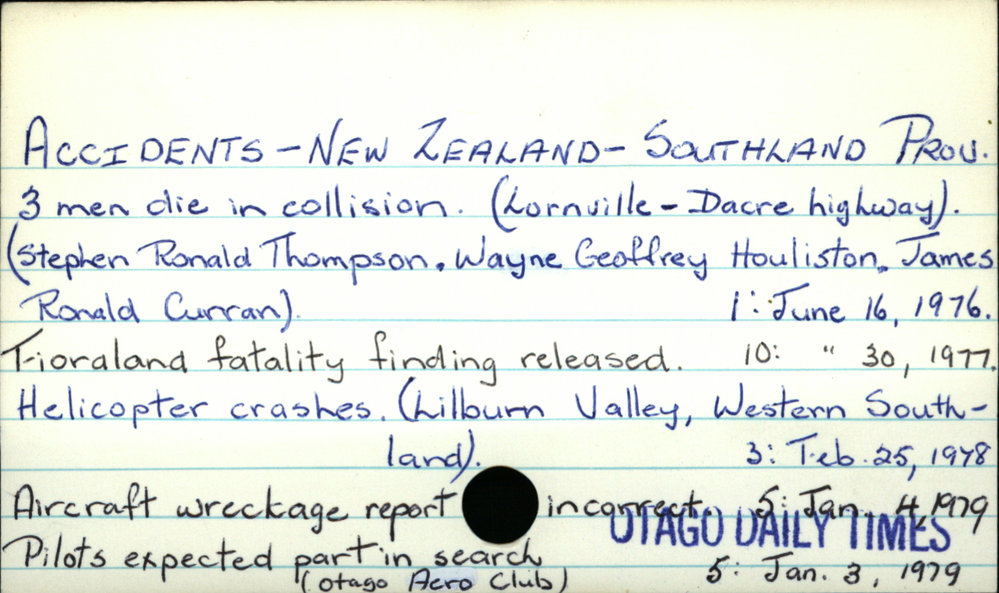 ACCIDENTS - NEW ZEALAND - SOUTHLAND PROV.
3 men die in collision. (Lornville - Dacre highway).
(Stephen Ronald Thompson, Wayne Geoffrey Houliston, James
Ronald Curran). 1: June 16, 1976.
Fioraland fatality finding released. 10: " 30, 1977.
Helicopter crashes. (Lilburn Valley, Western South-
land). 3: Feb. 25, 1978
Aircraft wreckage report incorrect. 5: Jan. 4, 1979
OTAGO DAILY TIMES
Pilots expected part in search
(Otago Aero Club) 5: Jan. 3, 1979